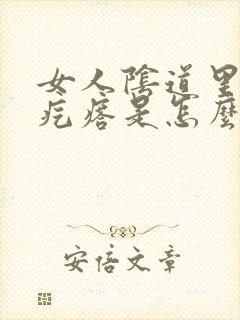 女人陰道里
疙瘩是怎麼
安倍文章